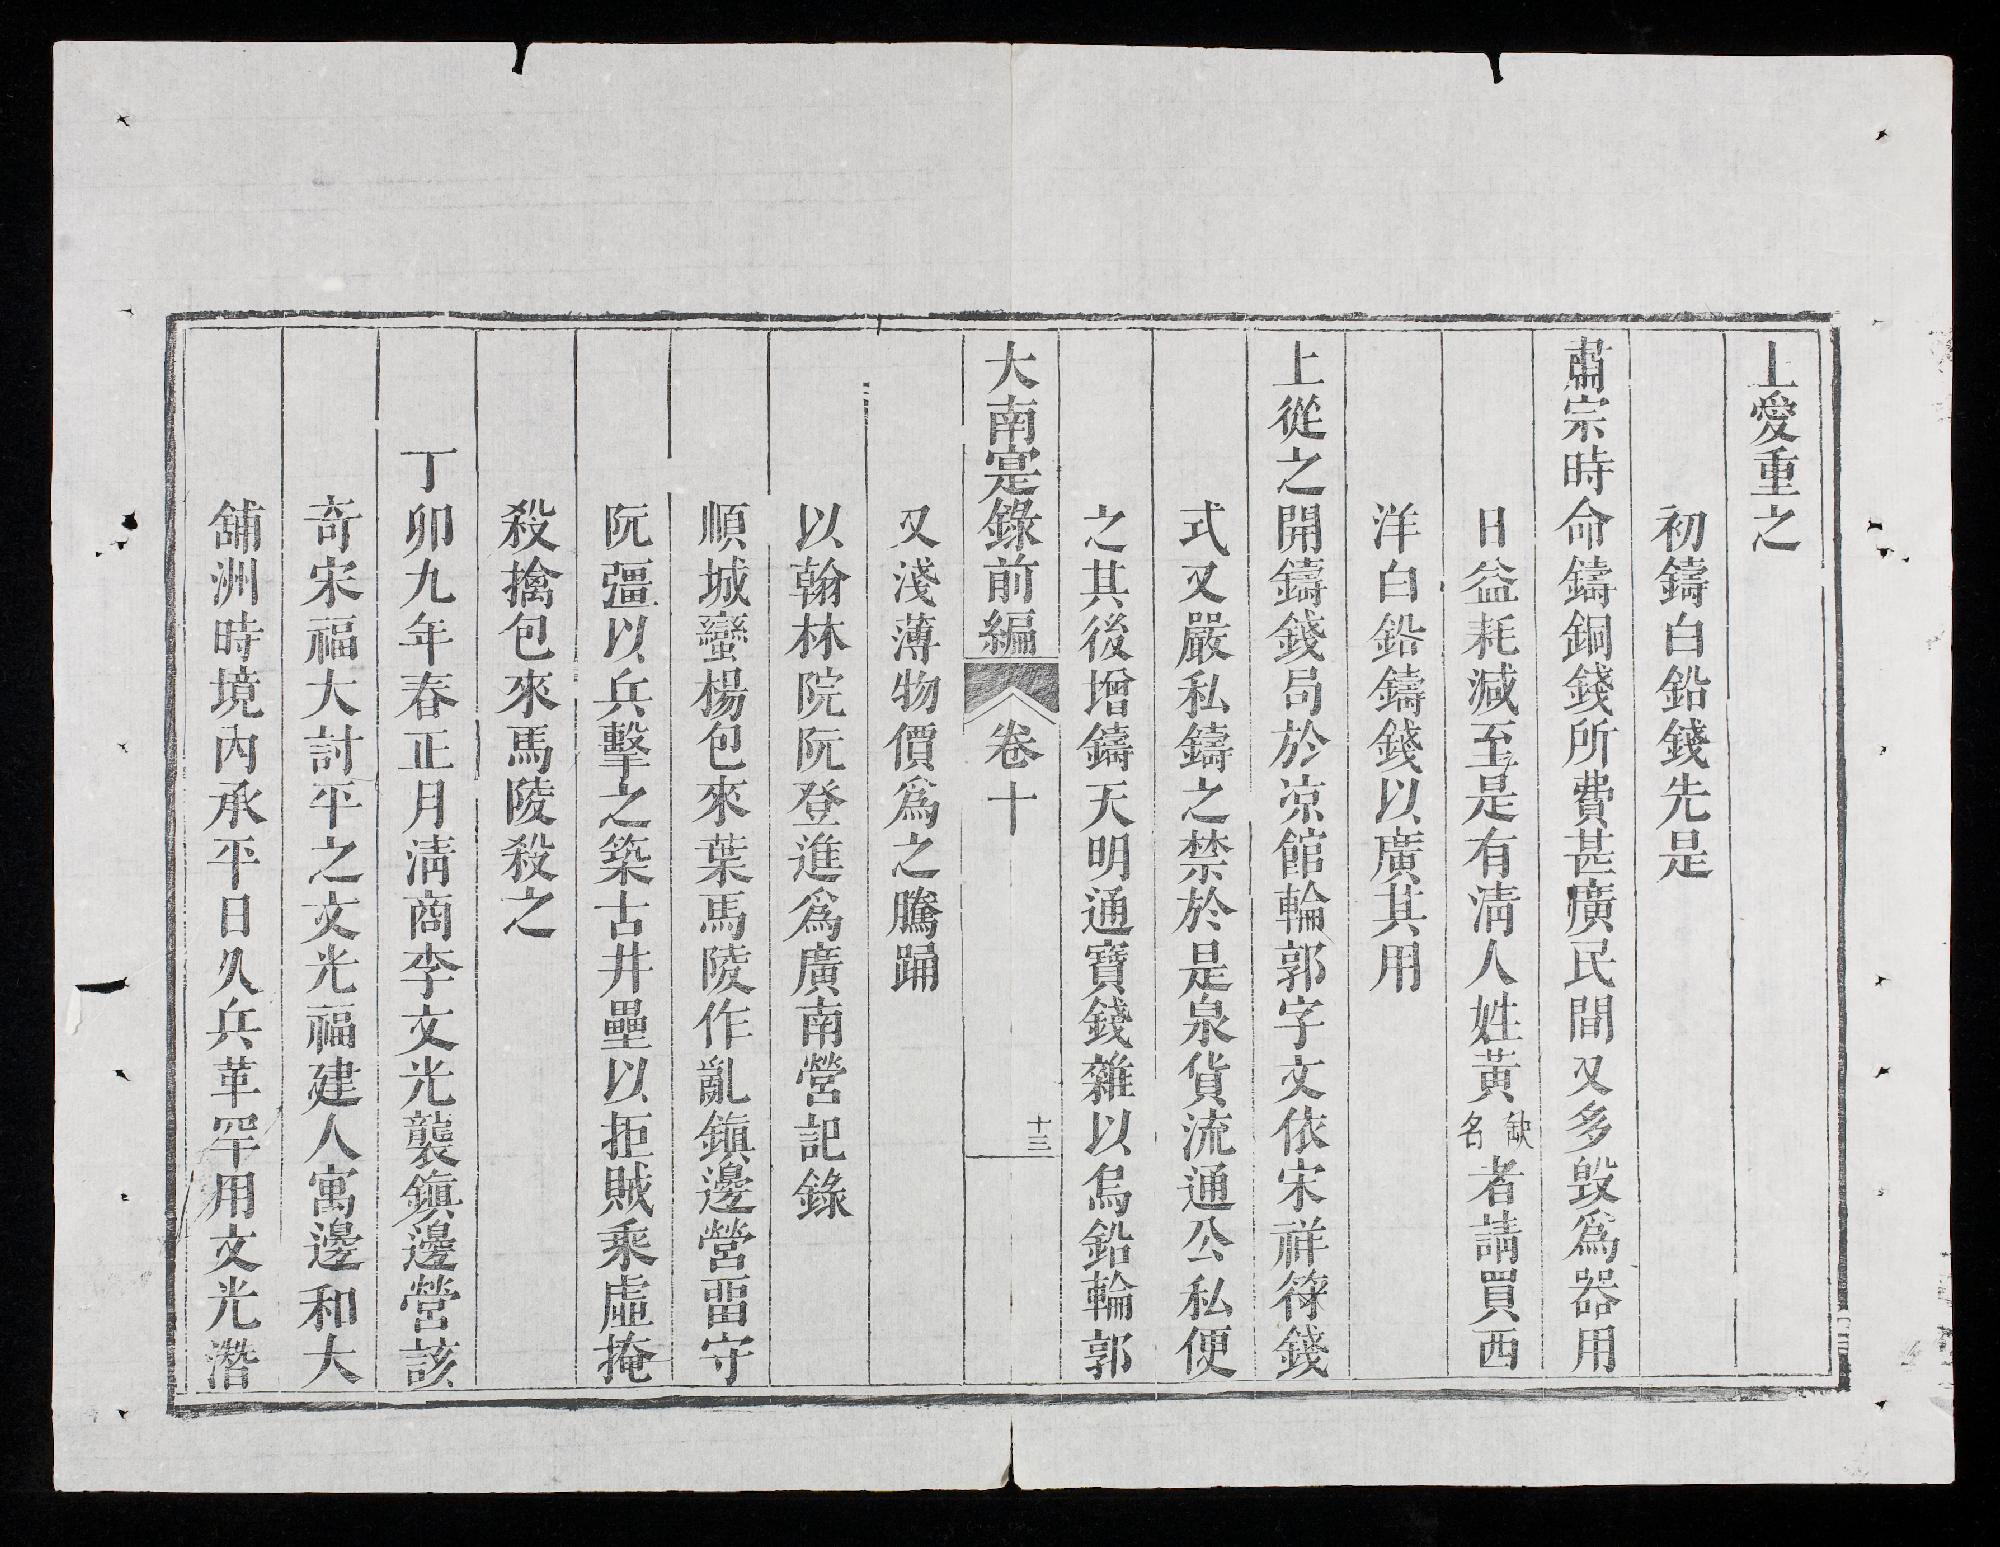 上愛重之
初鑄白鉛錢先是
肅宗時命鑄銅錢所費甚廣民間又多毀爲器用
日益耗減至是有淸人姓黃缺名者請買西
洋白鉛鑄錢以廣其用
上從之開鑄錢局於凉館輪郭字文依宋祥符錢
式又嚴私鑄之禁於是泉貨流通公私便
之其後增鑄天明通寶錢雜以烏鉛輪郭
大南寔錄前編
卷十
十三
又淺薄物價爲之騰踊
以翰林院阮登進爲廣南營記錄
順城蠻楊包來葉馬陵作亂鎭邊營畱守
阮彊以兵擊之築古井壘以拒賊乘虛掩
殺擒包來馬陵殺之
丁卯九年春正月淸商李文光襲鎭邊營該
奇宋福大討平之文光福建人寓邊和大
舖洲時境內承平日久兵革罕用文光潛